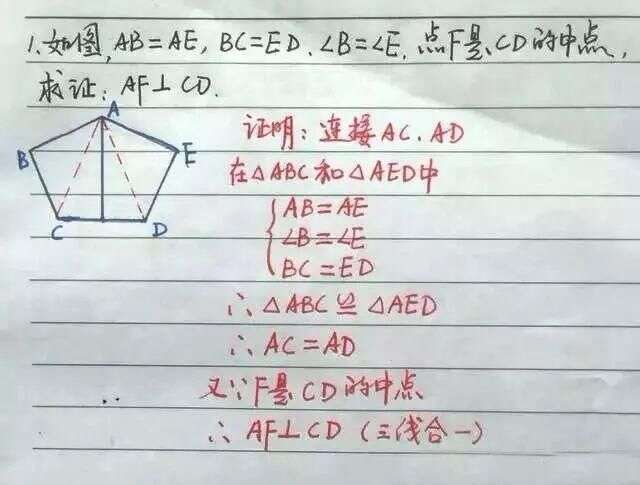 1.如图,AB=AE,BC=ED.∠B=∠E.点F是CD的中点,
求证:AF⊥CD.
A
B
E
C
D
证明:连接AC.AD
在△ABC和△AED中
AB=AE
∠B=∠E
BC=ED
∴△ABC≌△AED
∴AC=AD
又∵F是CD的中点
∴AF⊥CD(三线合一)